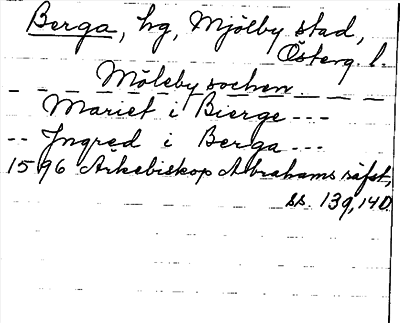 Berga, hg, Mjölby stad,
Österg. l.
_ _ _ Möleby sochen _ _ _
Mariet i Bierge ---
-- Ingred i Berga ---
1596 Ärkebiskop Abrahams räfst,
ss. 139, 140.